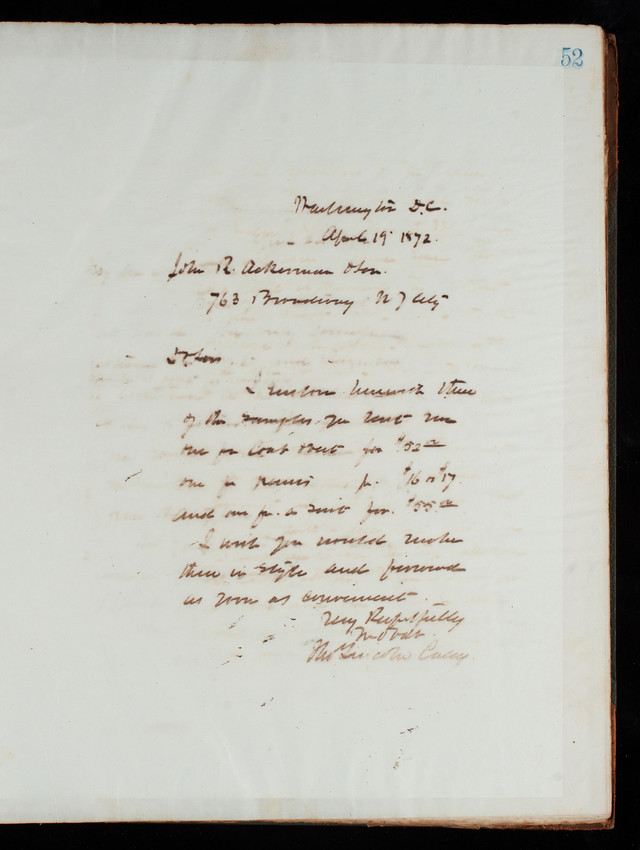 52
Washington D.C.
April 19 1872.
John R. Ackerman & Son.
763 Broadway N Y City
Dr Sirs.
I enclose herewith three
of the samples you sent me
one for Coat & Vest for $52 00
one for pants for $16 or $17.
and one for a suit for $55 00
I wish you would make
them in style and forward
as soon as convenient.
Very Respectfully
Yr Obdt.
Thos Lincoln Casey